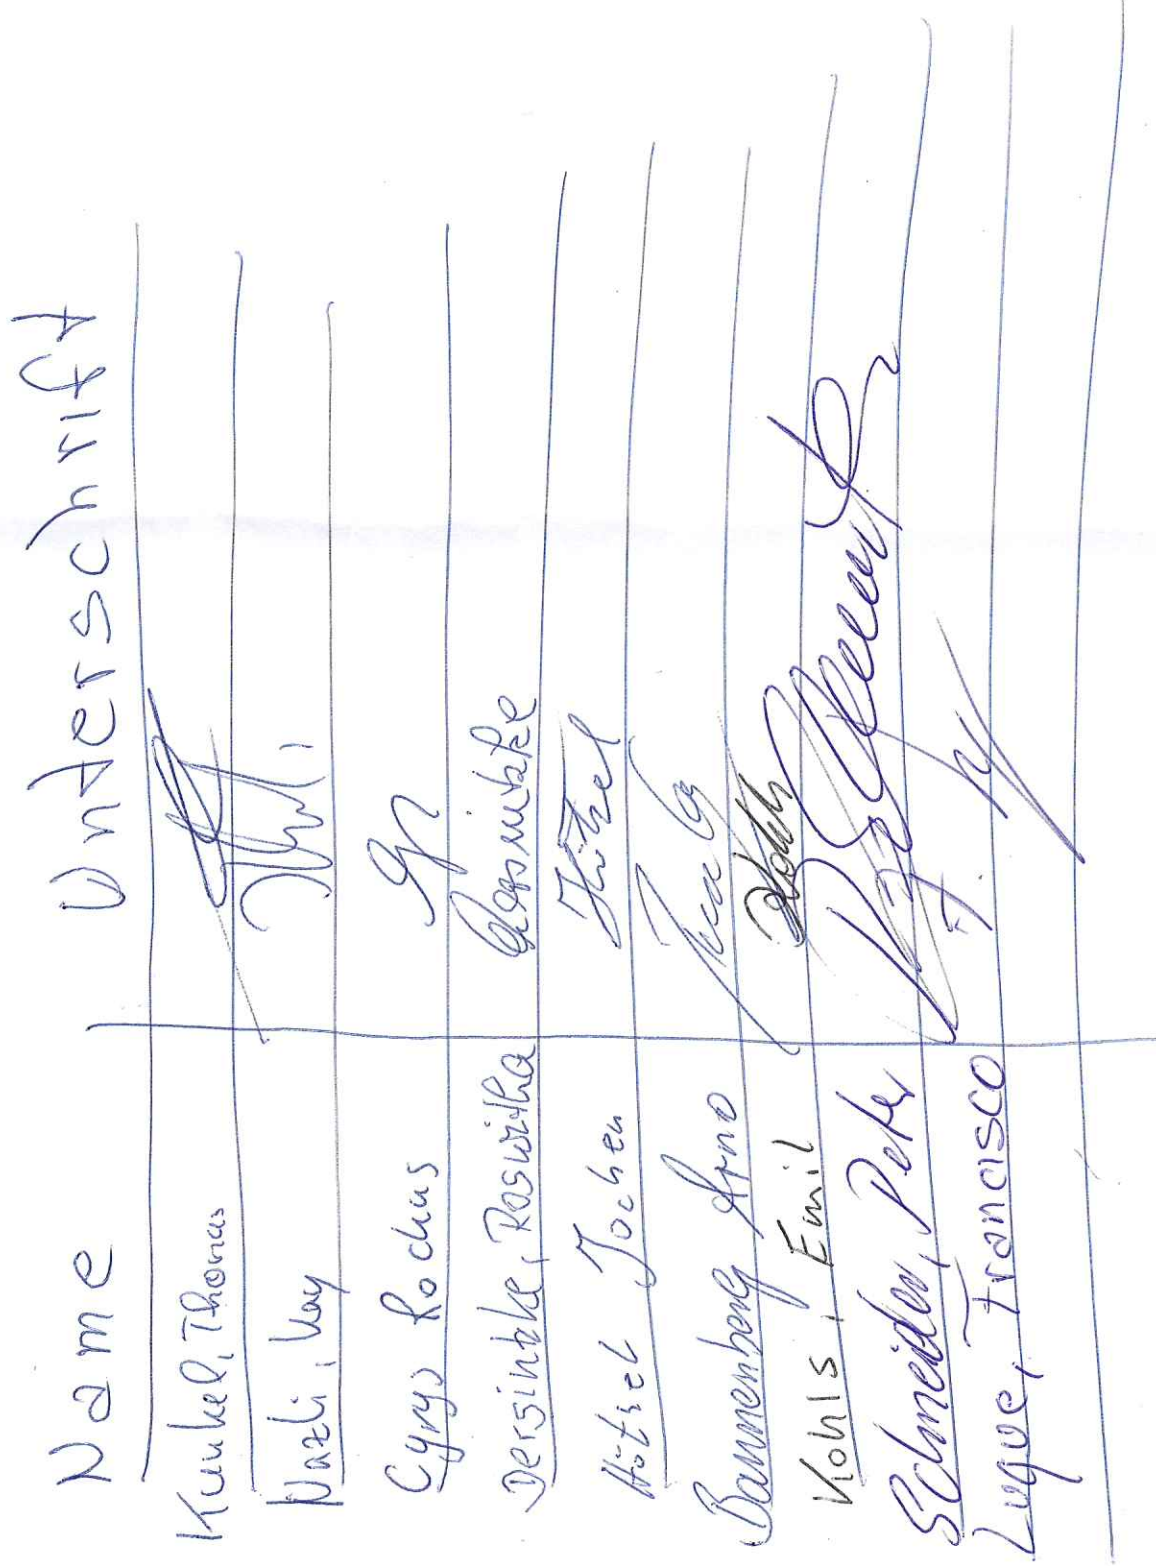 Name Unterschrift
Kunkel, Thomas
Nazli, Kay
Cyrys Rochus
Dersintke, Roswitha Dersintke
Hötzel Jochen Hötzel
Bannenberg Arno
Kohls, Emil Kohls
Schneider, Peter
Luque, Francisco F.